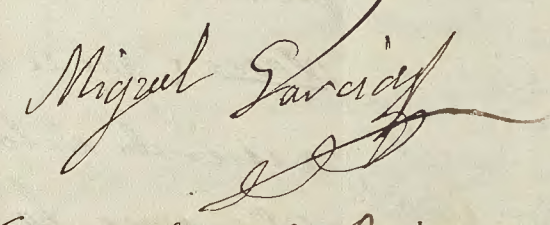 Miguel Garcia